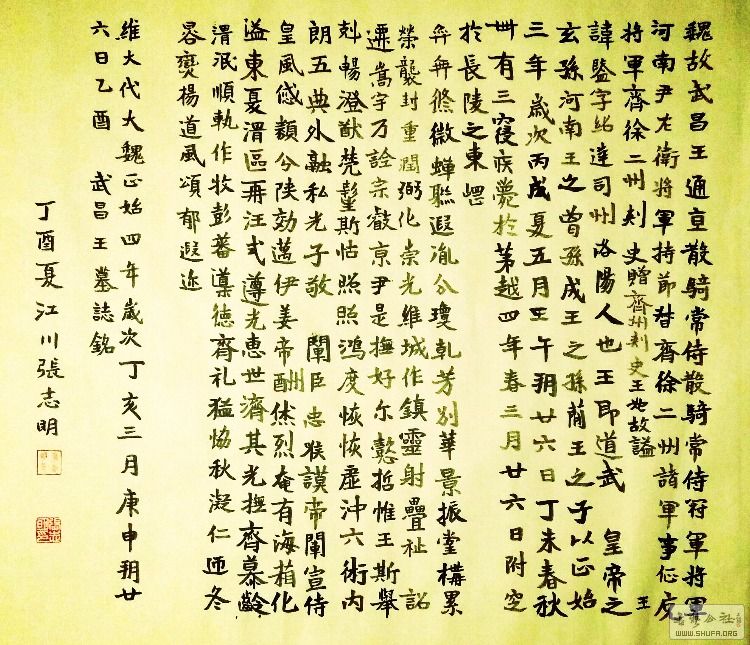 魏故武昌王通直散騎常侍散騎常侍冠軍將軍
河南尹左衛將軍持節督齊徐二州諸軍事征虜
將軍齊徐二州刺史贈齊州刺史王妃故諡
王
諱鑒字紹達司州洛陽人也王即道武皇帝之
玄孫河南王之曾孫成王之孫簡王之子以正始
三年歲次丙戌夏五月壬午朔廿六日丁未春秋
卌有三寢疾薨於第越四年春三月廿六日附空
於長陵之東堈
弈弈條微蟬聯遐胤分瓊乾芳別華景振堂構累
榮襲封重潤弼化崇光維城作鎮靈射疊祉詔
遷嵩宇乃詮宗敬京尹是撫好尔懿哲惟王斯舉
剋暢澄猷斯怙照照鴻度恢恢虛沖六術内
朗五典外融私光子敬闡臣忠猴謨帝闈宣侍
皇風感纇分陝効邁伊姜帝酬休烈奄有海葙化
溢東夏渭區再汪式遵光惠世濟其光撫齊慕齡
渭泯順軌作牧彭蕃導德齊礼猛恊秋凝仁通冬
晷爕楊道風頌郁遐迩
維大代大魏正始四年歲次丁亥三月庚申朔廿
六日乙酉武昌王墓誌銘
丁酉夏江川張志明
書法公社
WWW.SHUFA.ORG